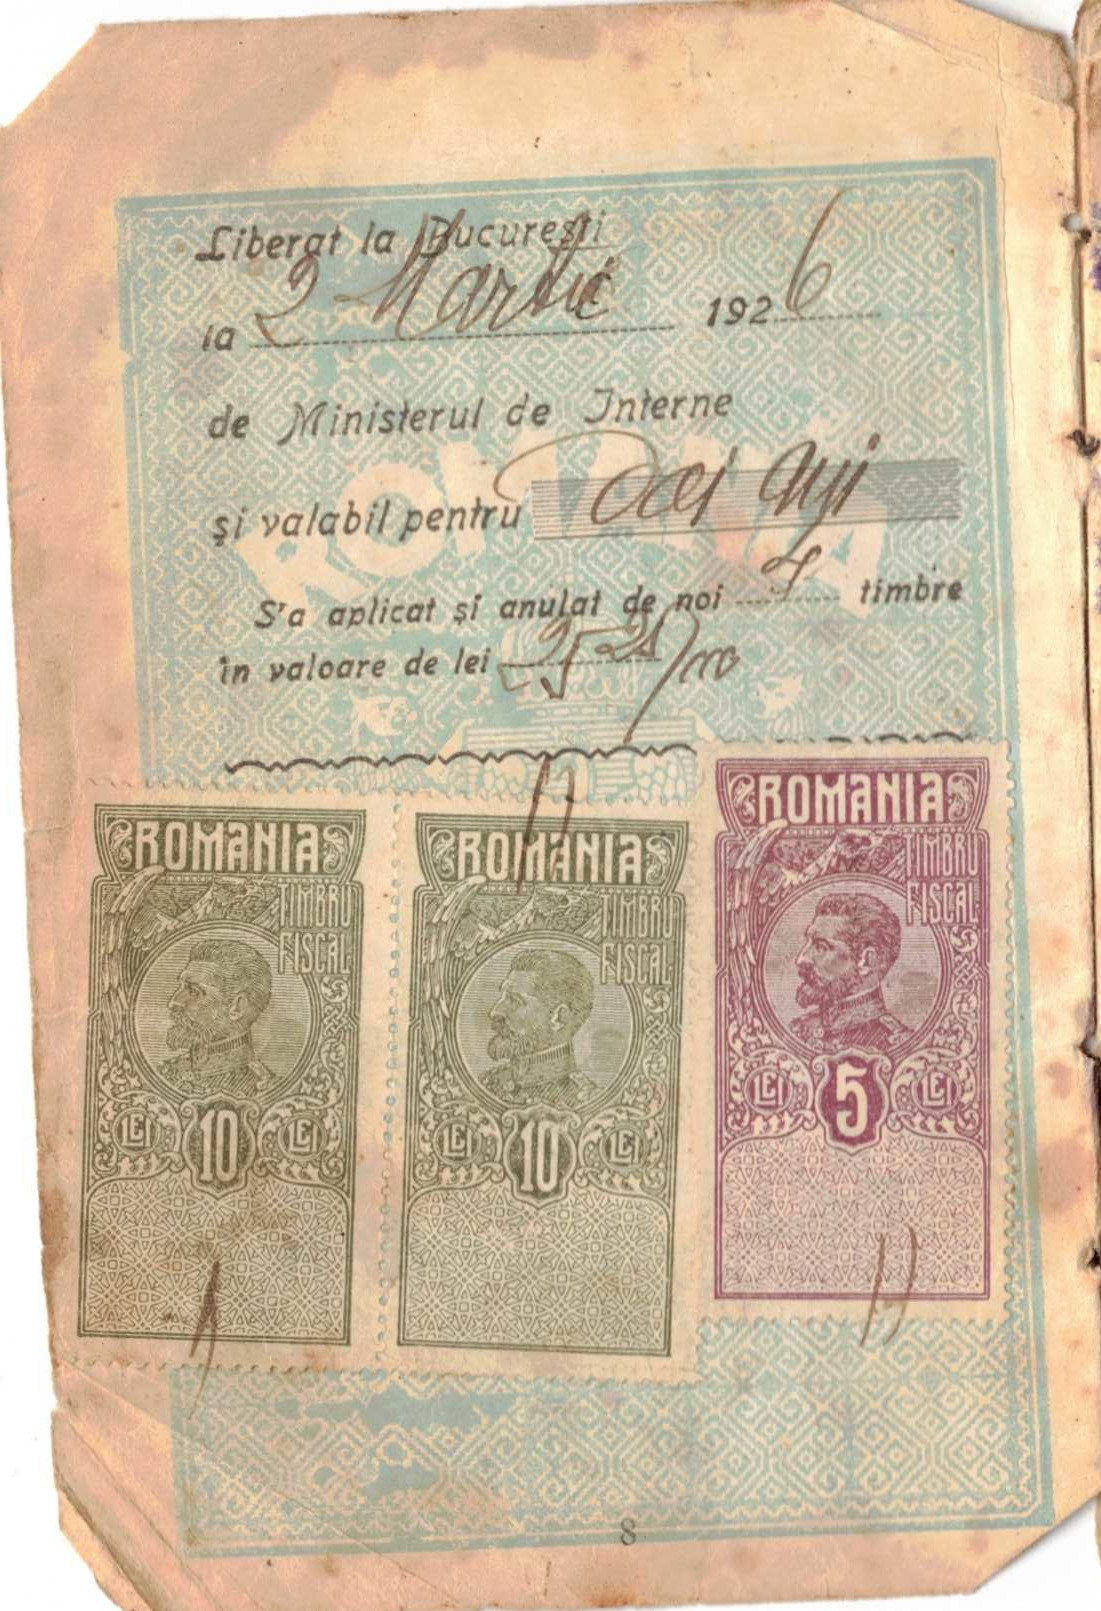 Liberat la București
la 2 Martie 1926
de Ministerul de Interne
și valabil pentru
S'a aplicat și anulat de noi timbre
în valoare de lei 25
ROMANIA
ROMANIA
TIMBRU
FISCAL
LEI 10 LEI
ROMANIA
TIMBRU
FISCAL
LEI 10 LEI
ROMANIA
TIMBRU
FISCAL
LEI 5 LEI
8